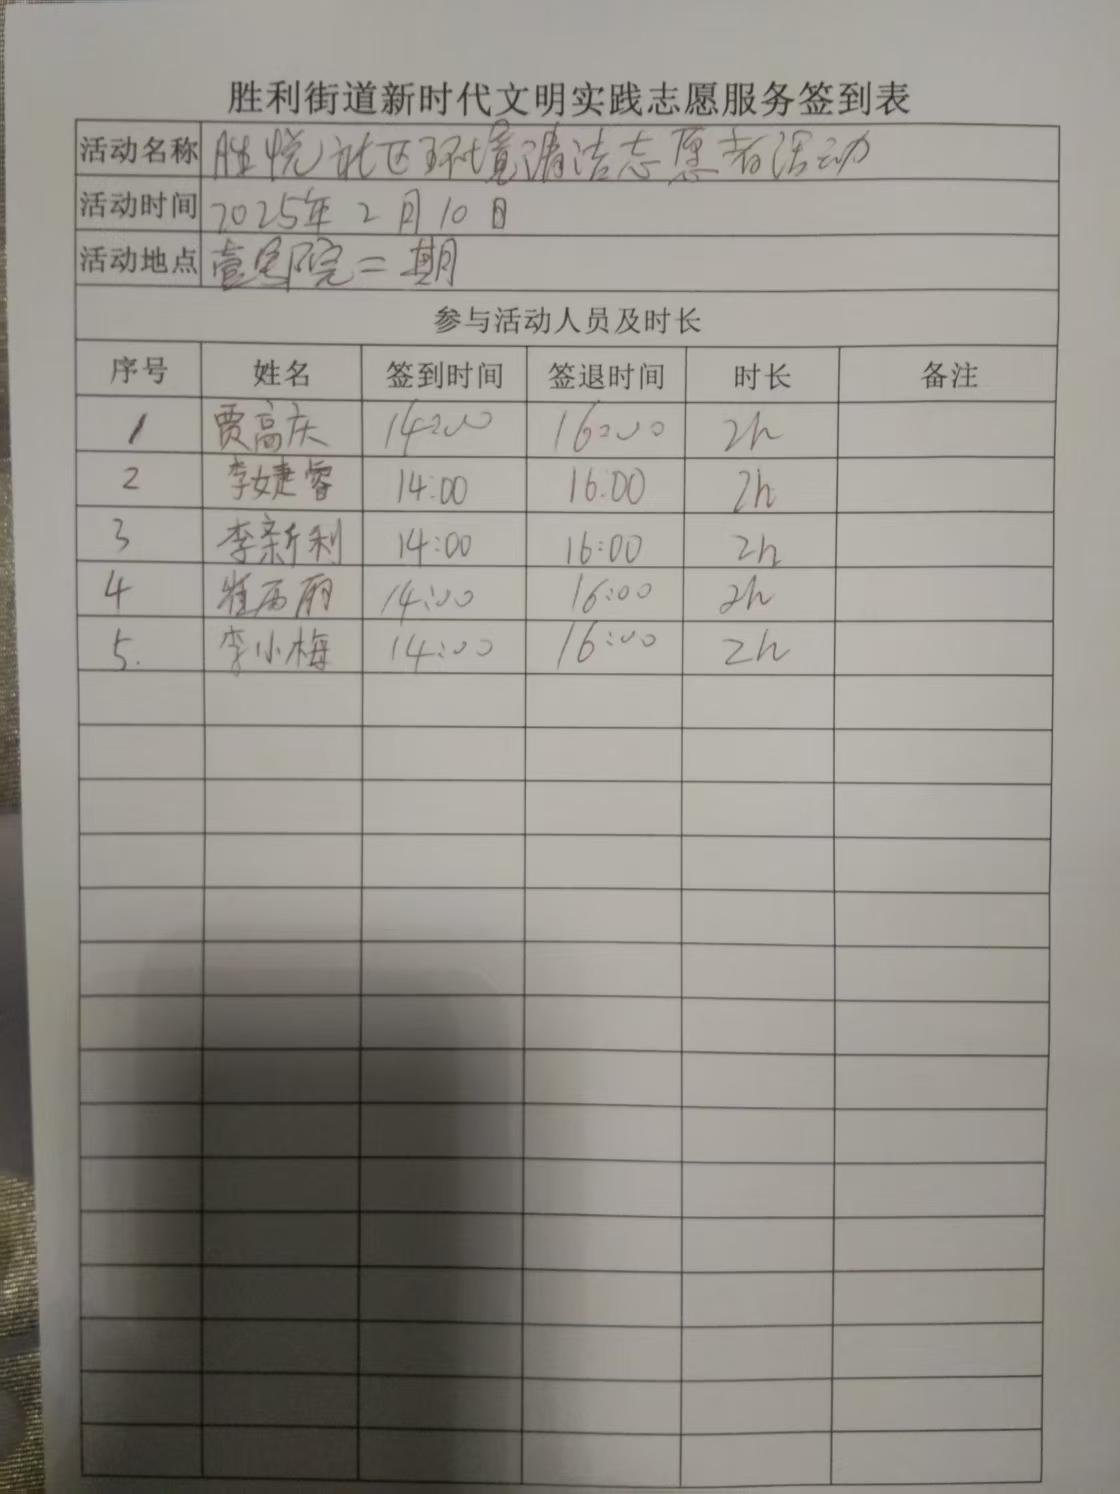 胜利街道新时代文明实践志愿服务签到表
活动名称 胜悦社区环境清洁志愿者活动
活动时间 2025年2月10日
活动地点 壹号院二期
参与活动人员及时长
序号 姓名 签到时间 签退时间 时长 备注
1 贾高庆 14:00 16:00 2h
2 李婕睿 14:00 16:00 2h
3 李新利 14:00 16:00 2h
4 丽 14:00 16:00 2h
5. 李小梅 14:00 16:00 2h